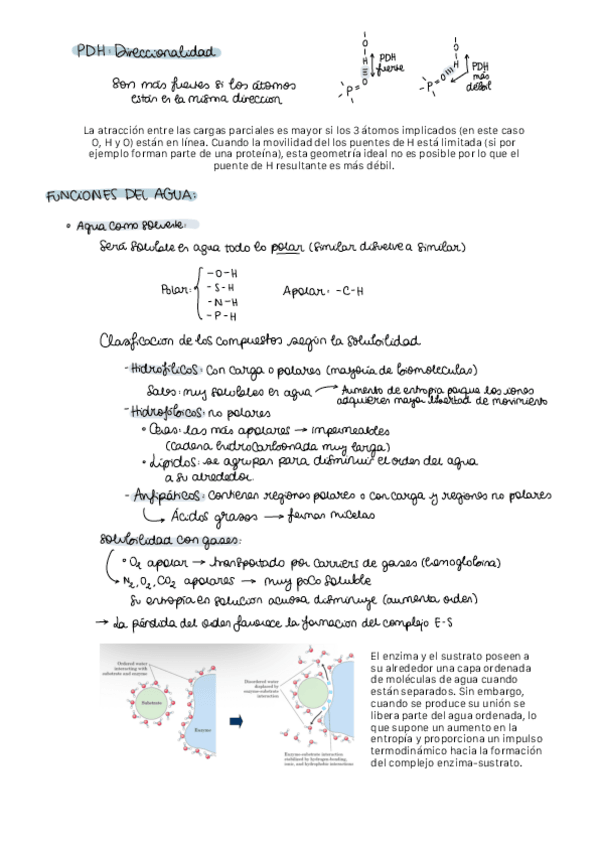 PDH: Direccionalidad
Son más fuertes si los átomos
están en la misma dirección
O
H
O
P
PDH
fuerte
O
H
O
P
PDH
más
débil
La atracción entre las cargas parciales es mayor si los 3 átomos implicados (en este caso
O, H y O) están en línea. Cuando la movilidad del los puentes de H está limitada (si por
ejemplo forman parte de una proteína), esta geometría ideal no es posible por lo que el
puente de H resultante es más débil.
FUNCIONES DEL AGUA:
• Agua como solvente:
Será soluble en agua todo lo polar (similar disuelve a similar)
Polar:
-O-H
-S-H
-N-H
-P-H
Apolar: -C-H
Clasificación de los compuestos según la solubilidad
- Hidrofílicos: con carga o polares (mayoría de biomoléculas)
Sales: muy solubles en agua → Aumento de entropía porque los iones
adquieren mayor libertad de movimiento
- Hidrofóbicos: no polares
• Ceras: las más apolares → impermeables
(cadena hidrocarbonada muy larga)
• Lípidos: se agrupan para disminuir el orden del agua
a su alrededor.
- Anfipáticos: contienen regiones polares o con carga y regiones no polares
↳ Ácidos grasos → forman micelas
Solubilidad con gases:
• O2 apolar → transportado por carriers de gases (hemoglobina)
N2, O2, CO2 apolares → muy poco soluble
Su entropía en solución acuosa disminuye (aumenta orden)
→ La pérdida del orden favorece la formación del complejo E-S
Ordered water
interacting with
substrate and enzyme
Substrate
Enzyme
Disordered water
displaced by
enzyme-substrate
interaction
Enzyme-substrate interaction
stabilized by hydrogen-bonding,
ionic, and hydrophobic interactions
El enzima y el sustrato poseen a
su alrededor una capa ordenada
de moléculas de agua cuando
están separados. Sin embargo,
cuando se produce su unión se
libera parte del agua ordenada, lo
que supone un aumento en la
entropía y proporciona un impulso
termodinámico hacia la formación
del complejo enzima-sustrato.